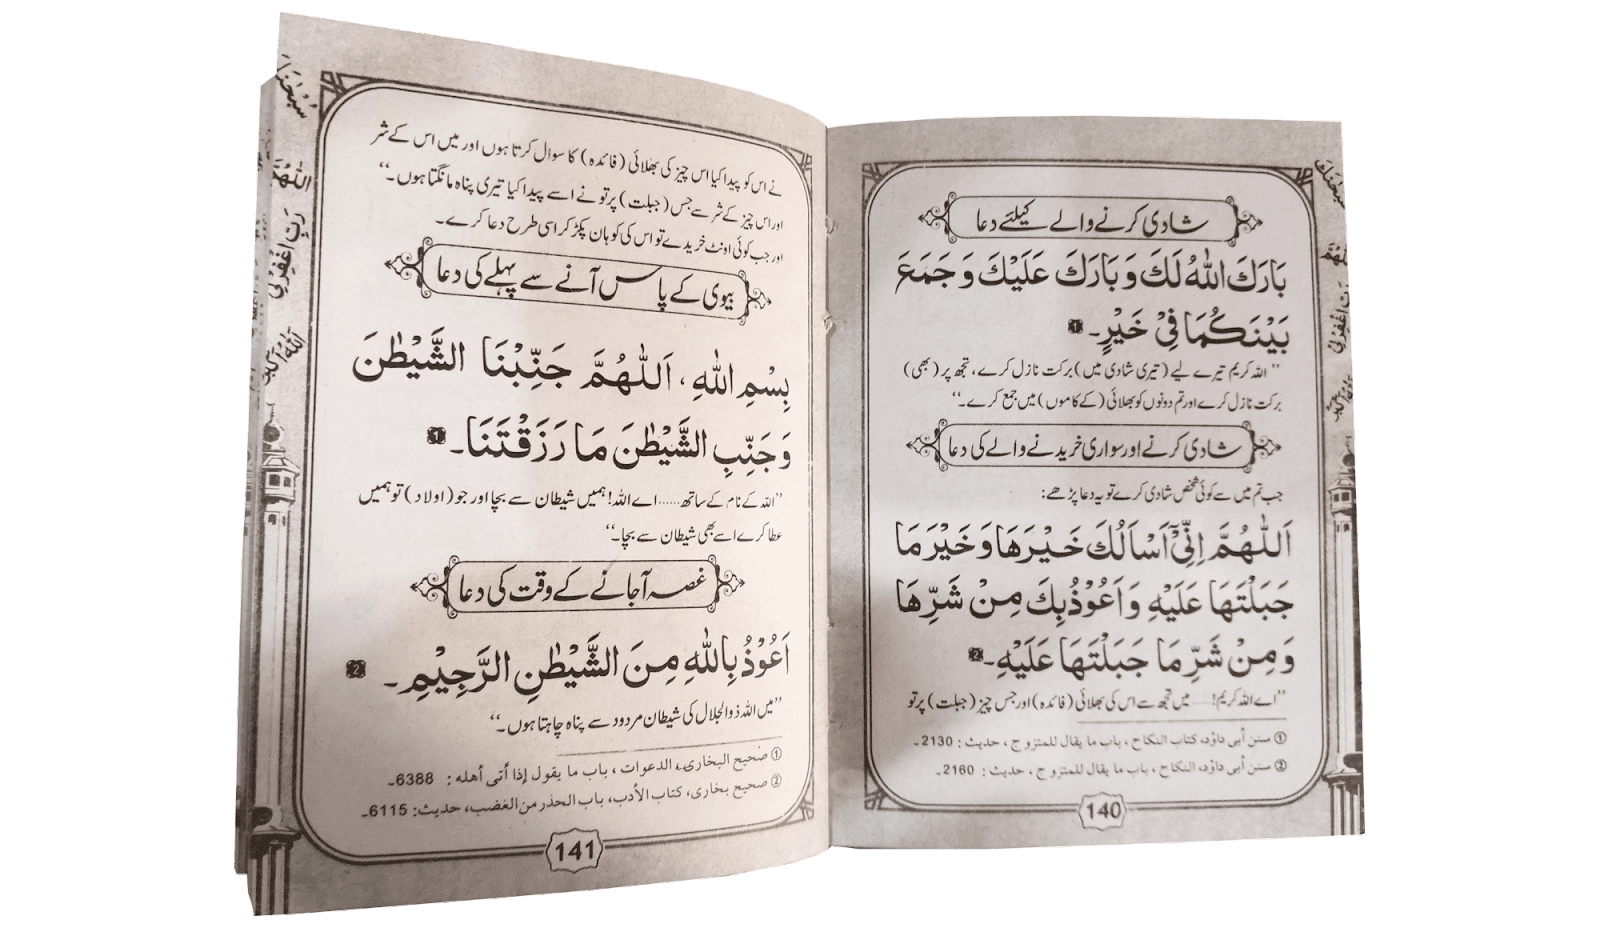 شادی کرنے والے کیلئے دعا
بَارَكَ اللهُ لَكَ وَبَارَكَ عَلَيْكَ وَجَمَعَ
بَيْنَكُمَا فِيْ خَيْرٍ۔ 1
”اللہ کریم تیرے لیے (تیری شادی میں) برکت نازل کرے، تجھ پر (بھی)
برکت نازل کرے اور تم دونوں کو بھلائی (کے کاموں) میں جمع کرے۔“
شادی کرنے اور سواری خریدنے والے کی دعا
جب تم میں سے کوئی شخص شادی کرے تو یہ دعا پڑھے:
اَللّٰهُمَّ اِنِّيْٓ اَسْاَلُكَ خَيْرَهَا وَخَيْرَ مَا
جَبَلْتَهَا عَلَيْهِ وَاَعُوْذُبِكَ مِنْ شَرِّهَا
وَمِنْ شَرِّ مَا جَبَلْتَهَا عَلَيْهِ۔ 2
”اے اللہ کریم!...... میں تجھ سے اس کی بھلائی (فائدہ) اور جس چیز (جبلت) پر تو
① سنن أبی داؤد، کتاب النکاح، باب ما یقال للمتزوج، حدیث: 2130۔
② سنن أبی داؤد، النکاح، باب ما یقال للمتزوج، حدیث: 2160۔
140
نے اس کو پیدا کیا اس چیز کی بھلائی (فائدہ) کا سوال کرتا ہوں اور میں اس کے شر
اور اس چیز کے شر سے جس (جبلت) پر تو نے اسے پیدا کیا تیری پناہ مانگتا ہوں۔“
اور جب کوئی اونٹ خریدے تو اس کی کوہان پکڑ کر اسی طرح دعا کرے۔
بیوی کے پاس آنے سے پہلے کی دعا
بِسْمِ اللهِ، اَللّٰهُمَّ جَنِّبْنَا الشَّيْطٰنَ
وَجَنِّبِ الشَّيْطٰنَ مَا رَزَقْتَنَا۔ 1
”اللہ کے نام کے ساتھ...... اے اللہ! ہمیں شیطان سے بچا اور جو (اولاد) تو ہمیں
عطا کرے اسے بھی شیطان سے بچا۔“
غصہ آجانے کے وقت کی دعا
اَعُوْذُ بِاللهِ مِنَ الشَّيْطٰنِ الرَّجِيْمِ۔ 2
”میں اللہ ذوالجلال کی شیطان مردود سے پناہ چاہتا ہوں۔“
① صحیح البخاری، الدعوات، باب ما یقول إذا أتی أهله: 6388۔
② صحیح بخاری، کتاب الأدب، باب الحذر من الغضب، حدیث: 6115۔
141
سُبْحٰنَ
اَللّٰهُمَّ
رَبِّ اغْفِرْلِيْ
اَللهُ اَكْبَر